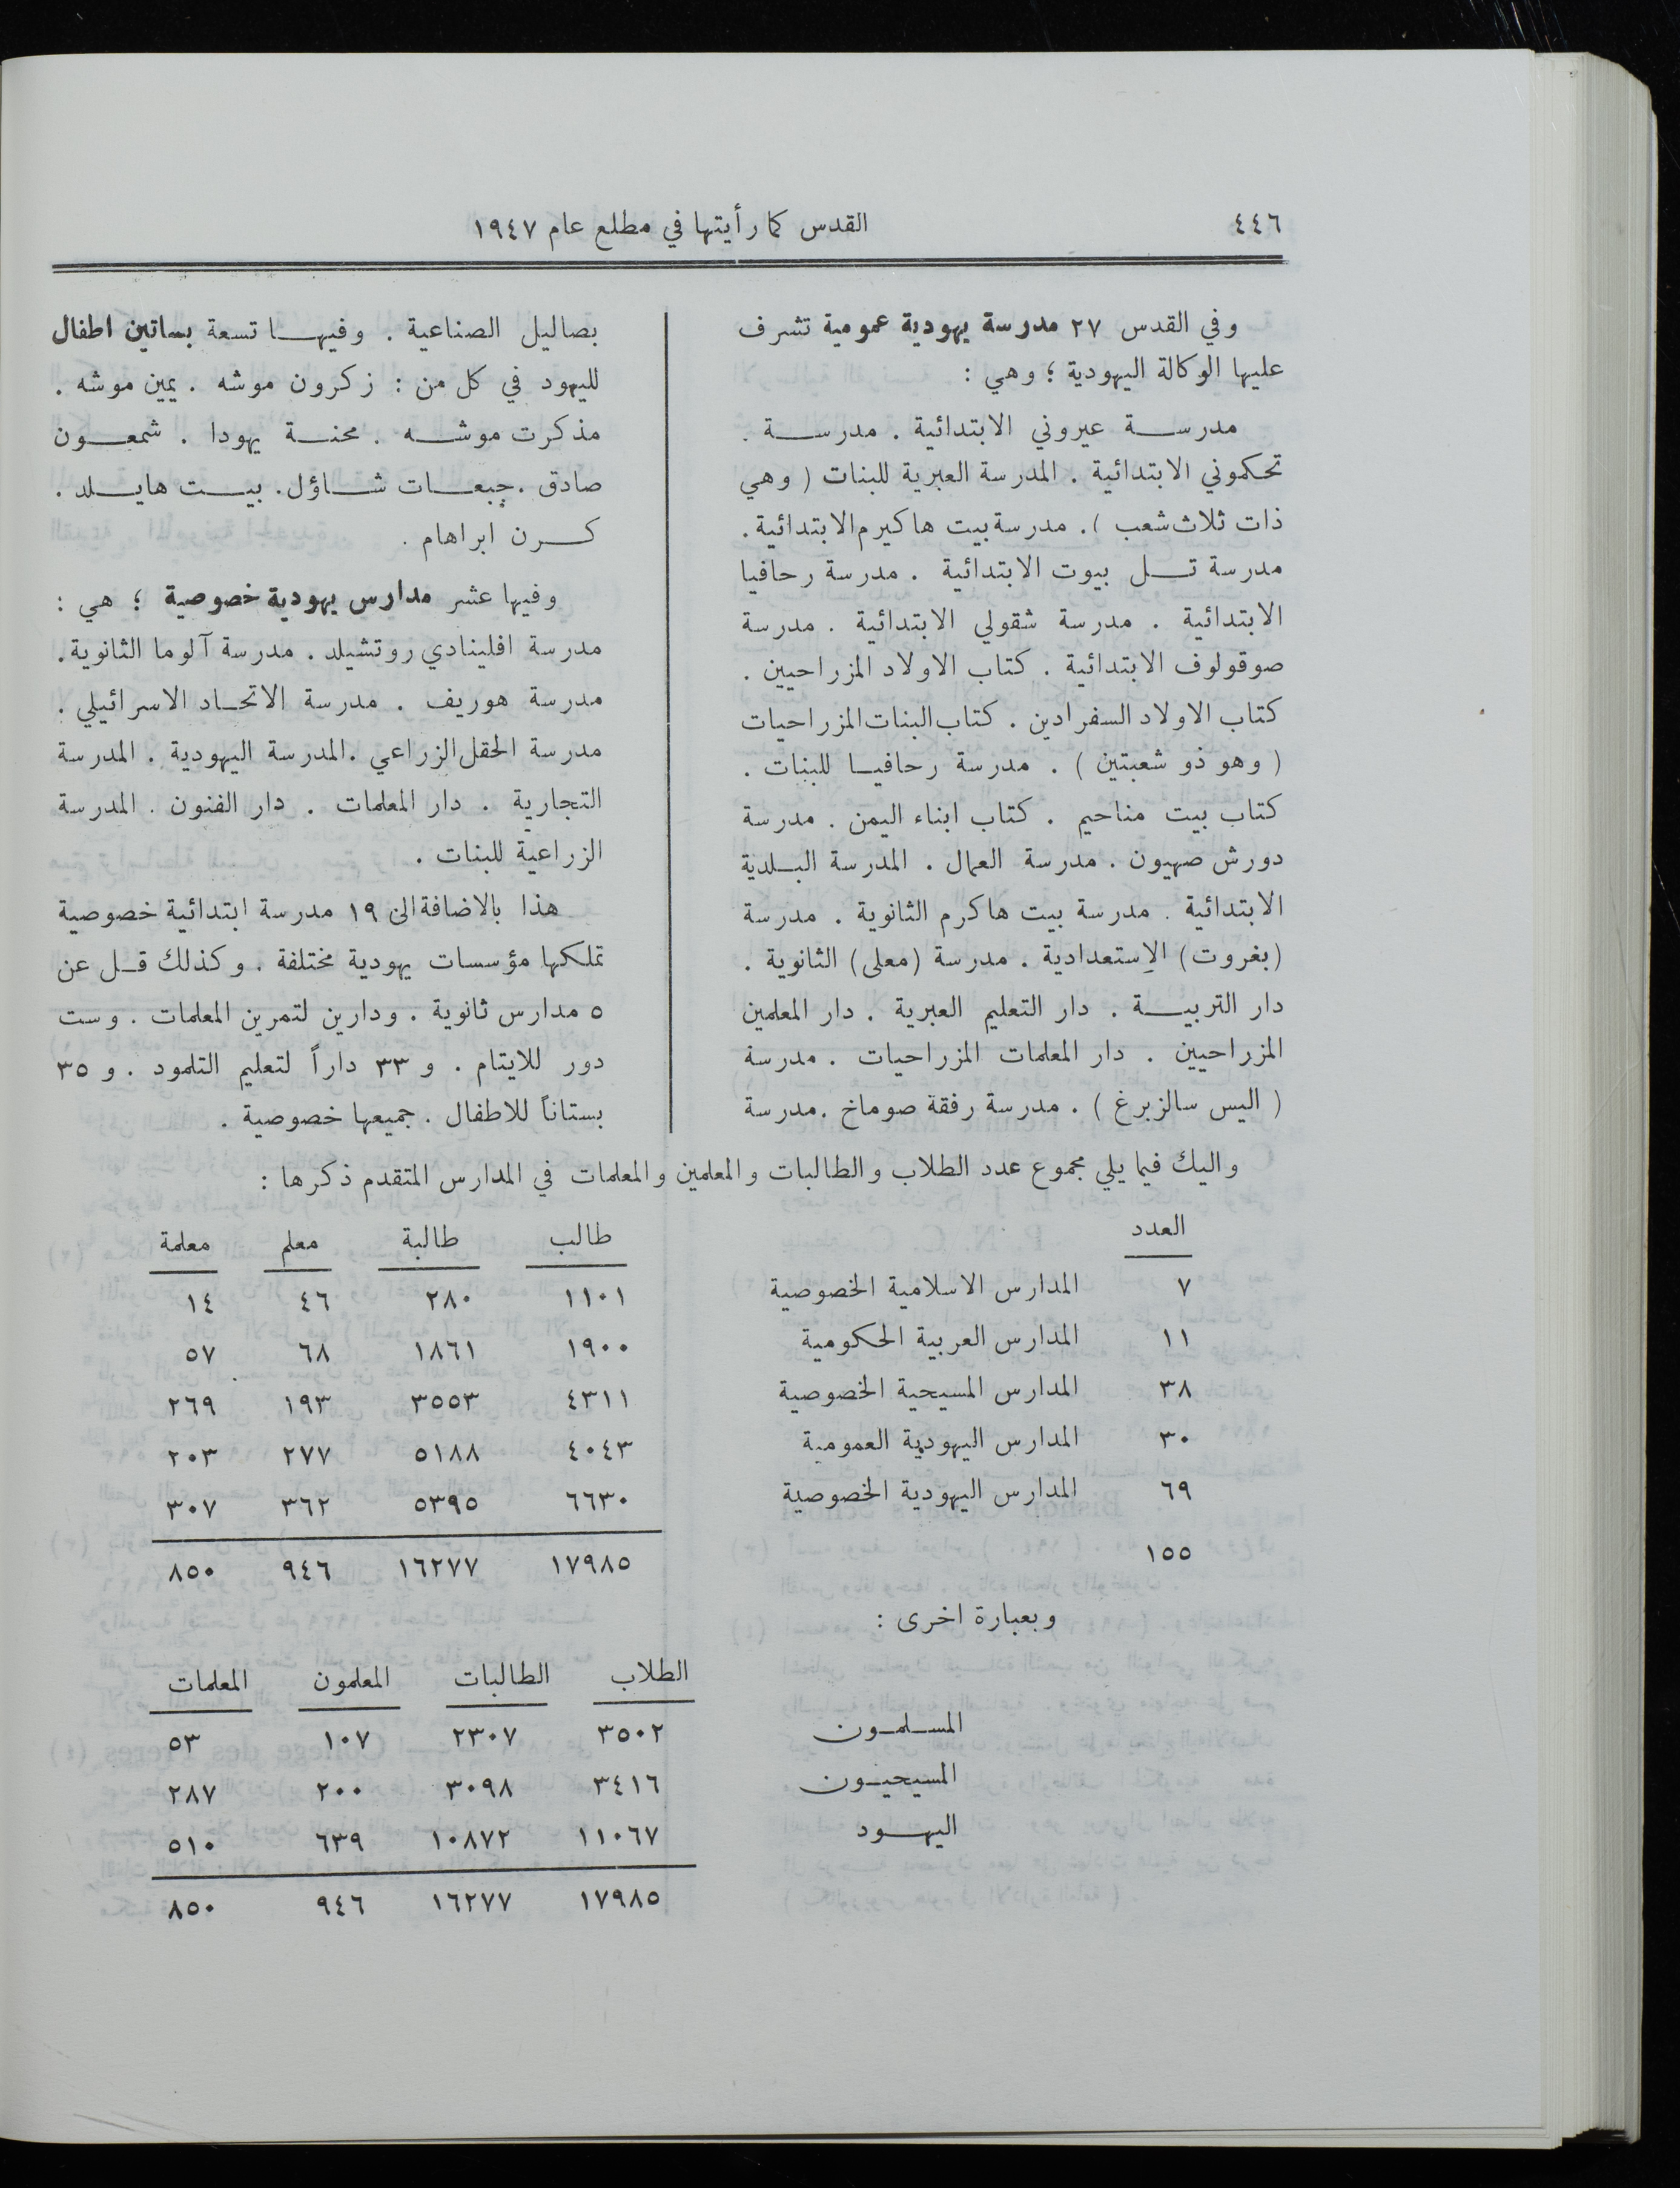 ٤٤٦
القدس كما رأيتها في مطلع عام ١٩٤٧
وفي القدس ٢٧ مدرسة يهودية عمومية تشرف
عليها الوكالة اليهودية ؛ وهي :
مدرسة عيروني الابتدائية . مدرسة .
تحكموني الابتدائية . المدرسة العبرية للبنات ( وهي
ذات ثلاث شعب ) . مدرسة بيت هاكيرم الابتدائية .
مدرسة تل بيوت الابتدائية . مدرسة رحافيا
الابتدائية . مدرسة شقولي الابتدائية . مدرسة
صوقولوف الابتدائية . كتاب الاولاد المزراحيين .
كتاب الاولاد السفرادين . كتاب البنات المزراحيات
( وهو ذو شعبتين ) . مدرسة رحافيا للبنات .
كتاب بيت مناحيم . كتاب ابناء اليمن . مدرسة
دورش صهيون . مدرسة العمال . المدرسة البلدية
الابتدائية . مدرسة بيت هاكرم الثانوية . مدرسة
(بغروت) الإستعدادية . مدرسة (معلى) الثانوية .
دار التربية . دار التعليم العبرية . دار المعلمين
المزراحيين . دار المعلمات المزراحيات . مدرسة
( اليس سالزبرغ ) . مدرسة رفقة صوماخ . مدرسة
بصاليل الصناعية . وفيها تسعة بساتين اطفال
لليهود في كل من : زكرون موشه . يمين موشه .
مذكرت موشه . محنة يهودا . شمعون
صادق . جبعات شاؤل . بيت هايلد .
كرن ابراهام .
وفيها عشر مدارس يهودية خصوصية ؛ هي :
مدرسة افلينادي روتشيلد . مدرسة آلوما الثانوية .
مدرسة هوريف . مدرسة الاتحاد الاسرائيلي .
مدرسة الحقل الزراعي . المدرسة اليهودية . المدرسة
التجارية . دار المعلمات . دار الفنون . المدرسة
الزراعية للبنات .
هذا بالاضافة الى ١٩ مدرسة ابتدائية خصوصية
تملكها مؤسسات يهودية مختلفة . وكذلك قل عن
٥ مدارس ثانوية . ودارين لتمرين المعلمات . وست
دور للايتام . و ٣٣ داراً لتعليم التلمود . و ٣٥
بستاناً للاطفال . جميعها خصوصية .
واليك فيما يلي مجموع عدد الطلاب والطالبات والمعلمين والمعلمات في المدارس المتقدم ذكرها :
العدد طالب طالبة معلم معلمة
٧ المدارس الاسلامية الخصوصية ١١٠١ ٢٨٠ ٤٦ ١٤
١١ المدارس العربية الحكومية ١٩٠٠ ١٨٦١ ٦٨ ٥٧
٣٨ المدارس المسيحية الخصوصية ٤٣١١ ٣٥٥٣ ١٩٣ ٢٦٩
٣٠ المدارس اليهودية العمومية ٤٠٤٣ ٥١٨٨ ٢٧٧ ٢٠٣
٦٩ المدارس اليهودية الخصوصية ٦٦٣٠ ٥٣٩٥ ٣٦٢ ٣٠٧
١٥٥ ١٧٩٨٥ ١٦٢٧٧ ٩٤٦ ٨٥٠
وبعبارة اخرى :
الطلاب الطالبات المعلمون المعلمات
المسلمون ٣٥٠٢ ٢٣٠٧ ١٠٧ ٥٣
المسيحيون ٣٤١٦ ٣٠٩٨ ٢٠٠ ٢٨٧
اليهود ١١٠٦٧ ١٠٨٧٢ ٦٣٩ ٥١٠
١٧٩٨٥ ١٦٢٧٧ ٩٤٦ ٨٥٠